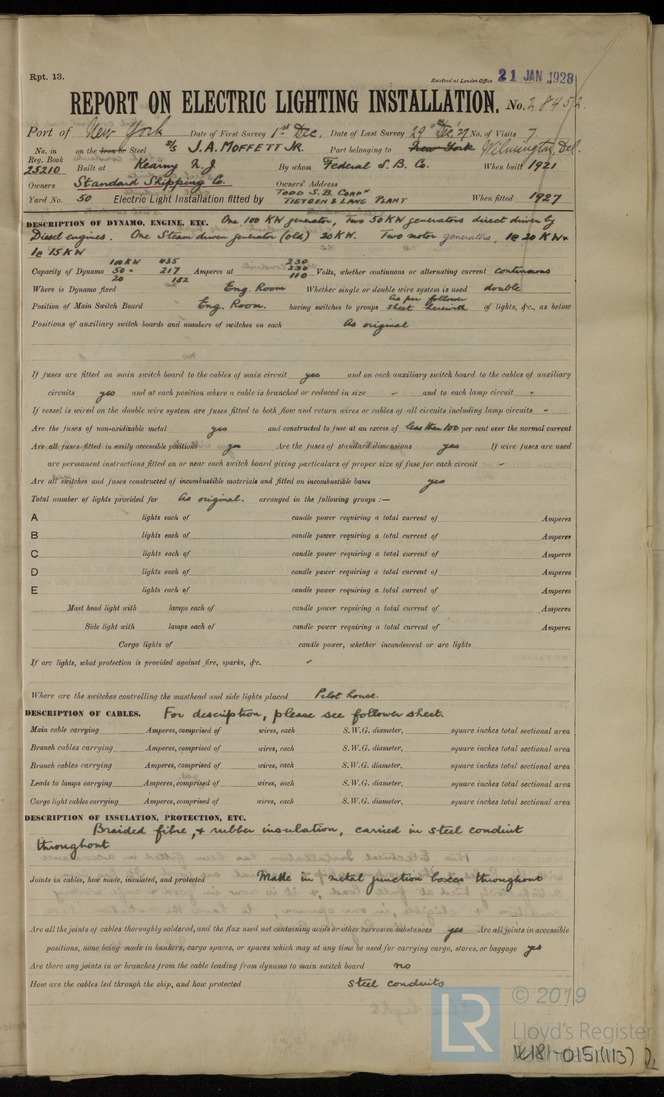 Rpt. 13.
Received at London Office 21 JAN 1928
REPORT ON ELECTRIC LIGHTING INSTALLATION. No. 28452
Port of New York Date of First Survey 1st Dec. Date of Last Survey 29th Dec '27 No. of Visits 7
No. in Reg. Book 25210 on the Iron or Steel S/S J.A. MOFFETT JR. Port belonging to New York Wilmington, Del.
Built at Kearny N.J By whom Federal S.B. Co. When built 1921
Owners Standard Shipping Co. Owners' Address
Yard No. 50 Electric Light Installation fitted by TODD S.B. CORPN TIETGEN & LANG PLANT When fitted 1927
DESCRIPTION OF DYNAMO, ENGINE, ETC. One 100 KW generator, Two 50 KW generators direct driven by
Diesel engines. One Steam driven generator (old) 20 KW. Two motor generators, 1@ 20 KW +
1@ 15 KW
100 KW 435 230
Capacity of Dynamo 50 " 217 Amperes at 230 Volts, whether continuous or alternating current continuous
20 182 110
Where is Dynamo fixed Eng. Room Whether single or double wire system is used double
Position of Main Switch Board Eng. Room. having switches to groups as per follower sheet herewith of lights, &c., as below
Positions of auxiliary switch boards and numbers of switches on each As original
If fuses are fitted on main switch board to the cables of main circuit yes and on each auxiliary switch board to the cables of auxiliary
circuits yes and at each position where a cable is branched or reduced in size - and to each lamp circuit -
If vessel is wired on the double wire system are fuses fitted to both flow and return wires or cables of all circuits including lamp circuits -
Are the fuses of non-oxidizable metal yes and constructed to fuse at an excess of less than 100 per cent over the normal current
Are all fuses fitted in easily accessible positions yes Are the fuses of standard dimensions yes If wire fuses are used
are permanent instructions fitted on or near each switch board giving particulars of proper size of fuse for each circuit -
Are all switches and fuses constructed of incombustible materials and fitted on incombustible bases yes
Total number of lights provided for As original. arranged in the following groups :—
A lights each of candle power requiring a total current of Amperes
B lights each of candle power requiring a total current of Amperes
C lights each of candle power requiring a total current of Amperes
D lights each of candle power requiring a total current of Amperes
E lights each of candle power requiring a total current of Amperes
Mast head light with lamps each of candle power requiring a total current of Amperes
Side light with lamps each of candle power requiring a total current of Amperes
Cargo lights of candle power, whether incandescent or arc lights
If arc lights, what protection is provided against fire, sparks, &c.
Where are the switches controlling the masthead and side lights placed Pilot house.
DESCRIPTION OF CABLES. For description, please see follower sheet.
Main cable carrying Amperes, comprised of wires, each S.W.G. diameter, square inches total sectional area
Branch cables carrying Amperes, comprised of wires, each S.W.G. diameter, square inches total sectional area
Branch cables carrying Amperes, comprised of wires, each S.W.G. diameter, square inches total sectional area
Leads to lamps carrying Amperes, comprised of wires, each S.W.G. diameter, square inches total sectional area
Cargo light cables carrying Amperes, comprised of wires, each S.W.G. diameter, square inches total sectional area
DESCRIPTION OF INSULATION, PROTECTION, ETC.
Braided fibre, & rubber insulation, carried in steel conduit
throughout
Joints in cables, how made, insulated, and protected Made in metal junction boxes throughout
Are all the joints of cables thoroughly soldered, and the flux used not containing acids or other corrosive substances yes Are all joints in accessible
positions, none being made in bunkers, cargo spaces, or spaces which may at any time be used for carrying cargo, stores, or baggage yes
Are there any joints in or branches from the cable leading from dynamo to main switch board no
How are the cables led through the ship, and how protected steel conduits
LR © 2019
Lloyd's Register
W181-0151(1/3)